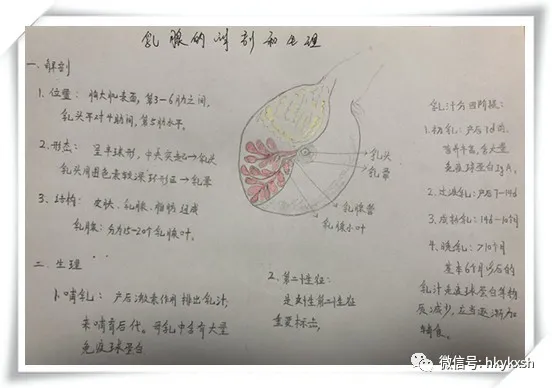 乳腺的解剖和生理
一. 解剖
1. 位置: 胸大肌表面, 第3-6肋之间,
乳头平对4肋间, 第5肋水平。
2. 形态: 呈半球形, 中央突起→乳头
乳头周围色素较深环形区→乳晕
3. 结构: 皮肤、乳腺、脂肪组成
乳腺: 分为15-20个乳腺叶。
乳头
乳晕
乳腺管
乳腺小叶
二. 生理
1. 哺乳: 产后激素作用排出乳汁,
来哺育后代。母乳中含有大量
免疫球蛋白
2. 第二性征:
是女性第二性征
重要标志。
乳汁分四阶段:
1. 初乳: 产后7d内,
营养丰富, 含大量
免疫球蛋白IgA。
2. 过渡乳: 产后7-14d
3. 成熟乳: 14d-10个月
4. 晚乳: >10个月
基本6个月以后的
乳汁免疫球蛋白等物
质减少, 应当逐渐加
辅食。
微信号: hkykxsh